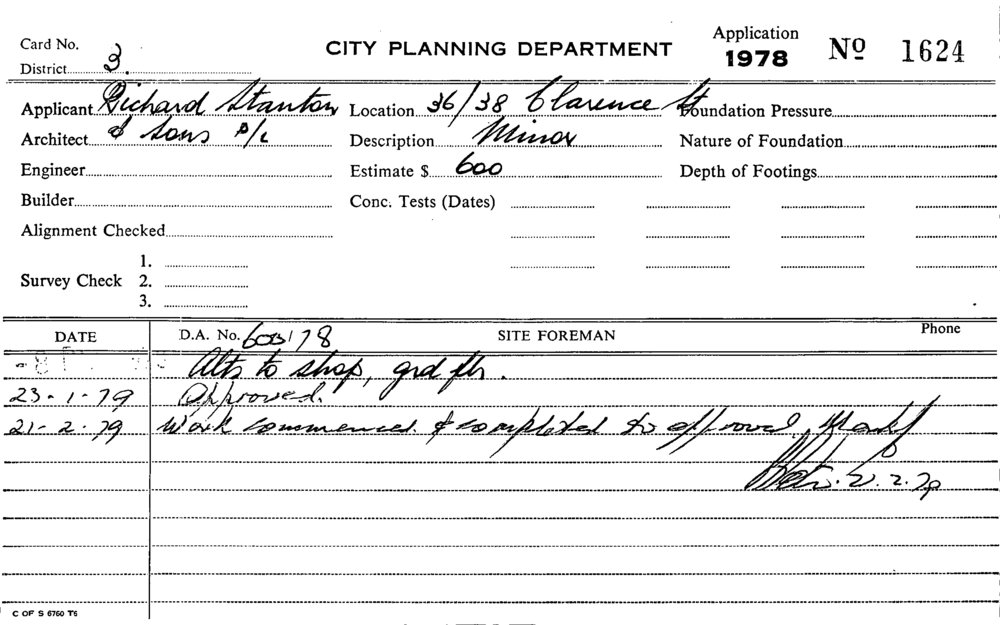 Card No.
District 3.
CITY PLANNING DEPARTMENT
Application
1978
No 1624
Applicant Richard Stanton
Location 36/38 Clarence St
Foundation Pressure
Architect & Sons P/L
Description Minor
Nature of Foundation
Engineer
Estimate $ 600
Depth of Footings
Builder
Conc. Tests (Dates)
Alignment Checked
Survey Check
1.
2.
3.
DATE
D.A. No. /78
SITE FOREMAN
Phone
Alts to shop, grd flr.
23-1-79 Approved.
21-2-79 Work commenced & completed to approval.
2.79
C OF S 6760 T6